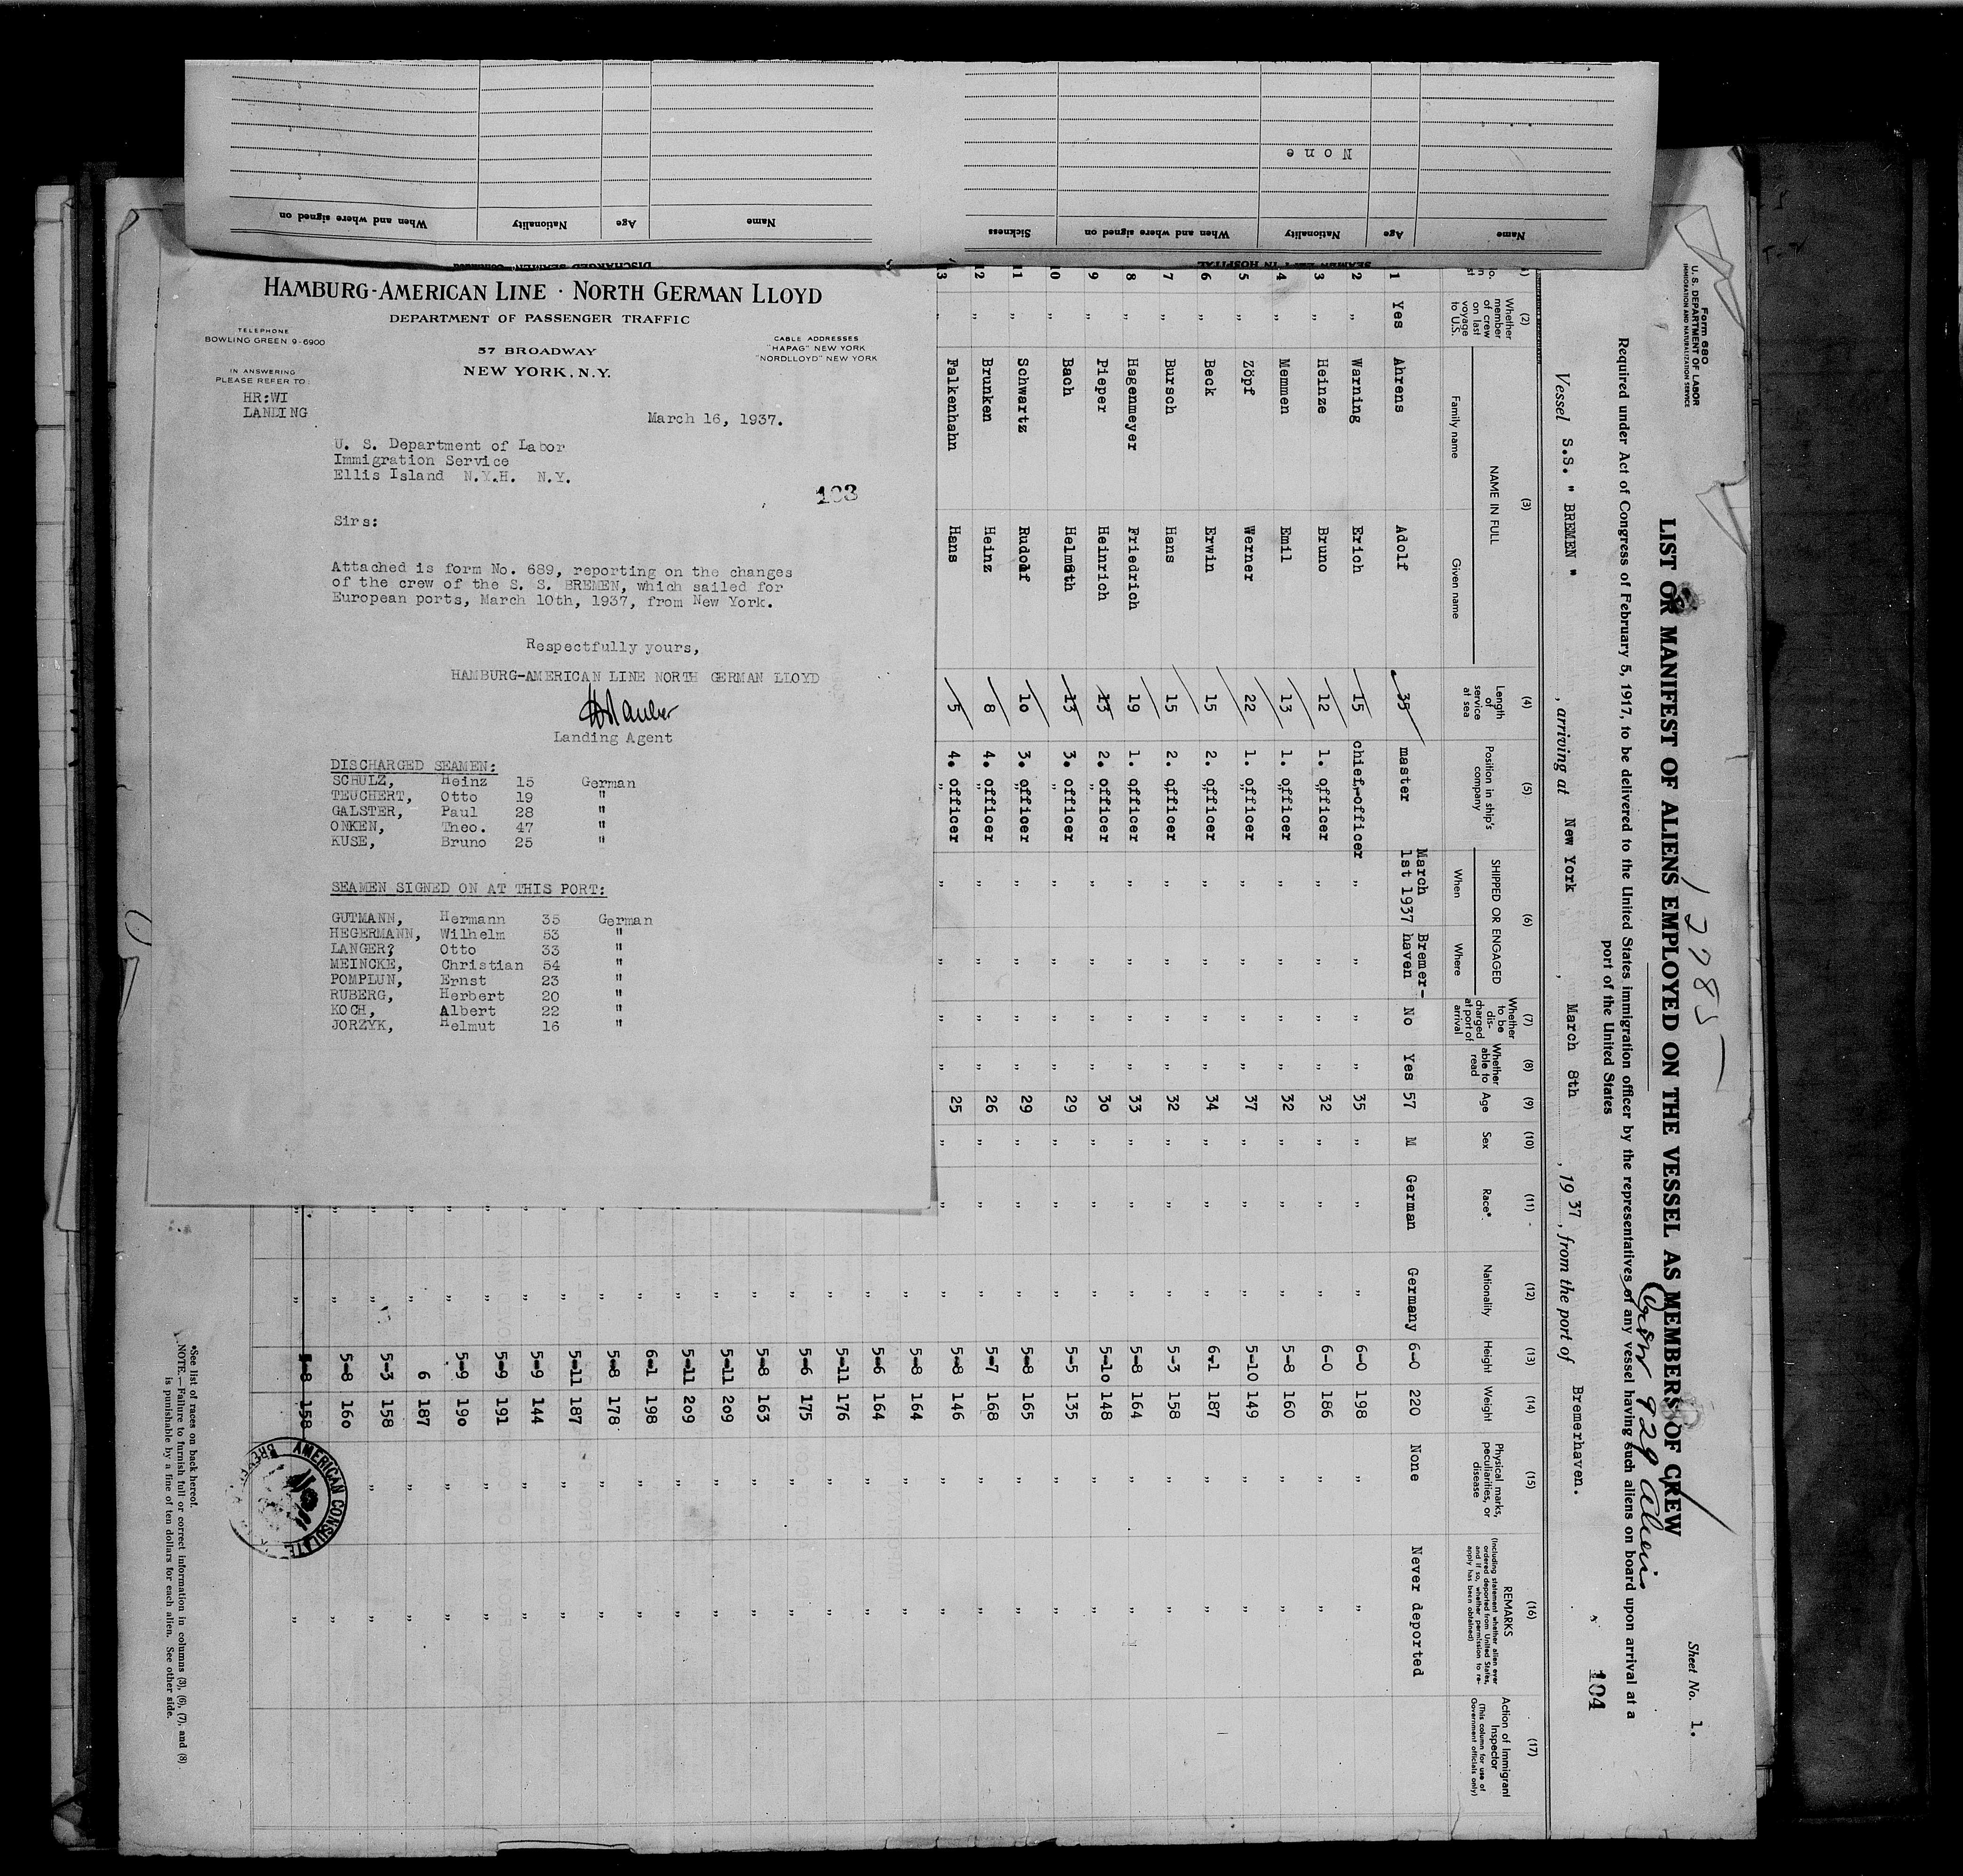 When and where signed on
Nationality
Age
Name
DISCHARGED SEAMEN
Sickness
When and where signed on
Nationality
Age
Name
None
SEAMEN LEFT IN HOSPITAL
HAMBURG-AMERICAN LINE · NORTH GERMAN LLOYD
DEPARTMENT OF PASSENGER TRAFFIC
TELEPHONE
BOWLING GREEN 9-6900
57 BROADWAY
NEW YORK, N.Y.
CABLE ADDRESSES
"HAPAG" NEW YORK
"NORDLLOYD" NEW YORK
IN ANSWERING
PLEASE REFER TO:
HR:WI
LANDING
March 16, 1937.
U. S. Department of Labor
Immigration Service
Ellis Island N.Y.H. N.Y.
103
Sirs:
Attached is form No. 689, reporting on the changes
of the crew of the S. S. BREMEN, which sailed for
European ports, March 10th, 1937, from New York.
Respectfully yours,
HAMBURG-AMERICAN LINE NORTH GERMAN LLOYD
Landing Agent
DISCHARGED SEAMEN:
SCHULZ, Heinz 15 German
TEUCHERT, Otto 19 "
GALSTER, Paul 28 "
ONKEN, Theo. 47 "
KUSE, Bruno 25 "
SEAMEN SIGNED ON AT THIS PORT:
GUTMANN, Hermann 35 German
HEGERMANN, Wilhelm 53 "
LANGER? Otto 33 "
MEINCKE, Christian 54 "
POMPLUN, Ernst 23 "
RUBERG, Herbert 20 "
KOCH, Albert 22 "
JORZYK, Helmut 16 "
Form 680
U. S. DEPARTMENT OF LABOR
IMMIGRATION AND NATURALIZATION SERVICE
Sheet No. 1.
LIST OR MANIFEST OF ALIENS EMPLOYED ON THE VESSEL AS MEMBERS OF CREW
929 Aliens
Required under Act of Congress of February 5, 1917, to be delivered to the United States immigration officer by the representatives of any vessel having such aliens on board upon arrival at a
port of the United States
104
Vessel S.S. " BREMEN " , arriving at New York , March 8th , 1937 , from the port of Bremerhaven.
(2) (3) (4) (5) (6) (7) (8) (9) (10) (11) (12) (13) (14) (15) (16) (17)
Whether member of crew on last voyage to U.S.
NAME IN FULL
Family name
Given name
Length of service at sea
Position in ship's company
SHIPPED OR ENGAGED
When
Where
Whether to be discharged at port of arrival
Whether able to read
Age
Sex
Race*
Nationality
Height
Weight
Physical marks, peculiarities, or disease
REMARKS
(Including statement whether alien ever ordered deported from United States, and if so, whether permission to reapply has been obtained)
Action of Immigrant Inspector
(This column for use of Government officials only)
1 Yes Ahrens Adolf 35 master March 1st 1937 Bremerhaven No Yes 57 M German Germany 6-0 220 None Never deported
2 " Warning Erich 15 chief-officer " " " " 35 " " " 6-0 198 " "
3 " Heinze Bruno 12 1. officer " " " " 32 " " " 6-0 186 " "
4 " Memmen Emil 13 1. officer " " " " 32 " " " 5-8 160 " "
5 " Zöpf Werner 22 1. officer " " " " 37 " " " 5-10 149 " "
6 " Beck Erwin 15 2. officer " " " " 34 " " " 6-1 187 " "
7 " Bursch Hans 15 2. officer " " " " 32 " " " 5-3 158 " "
8 " Hagenmeyer Friedrich 19 1. officer " " " " 33 " " " 5-8 164 " "
9 " Pieper Heinrich 13 2. officer " " " " 30 " " " 5-10 148 " "
10 " Bach Helmuth 13 3. officer " " " " 29 " " " 5-5 135 " "
11 " Schwartz Rudolf 10 3. officer " " " " 29 " " " 5-8 165 " "
12 " Brunken Heinz 8 4. officer " " " " 26 " " " 5-7 168 " "
13 " Falkenhahn Hans 5 4. officer " " " " 25 " " " 5-8 146 " "
" 5-8 164 " "
" 5-6 164 " "
" 5-11 176 " "
" 5-6 175 " "
" 5-8 163 " "
" 5-11 209 " "
" 5-11 209 " "
" 6-1 198 " "
" 5-8 178 " "
" 5-11 187 " "
" 5-9 144 " "
" 5-9 191 " "
" 5-9 190 " "
" 6 187 " "
" 5-3 158 " "
" 5-8 160 " "
" 5-8 158 "
AMERICAN CONSULATE
*See list of races on back hereof.
NOTE.—Failure to furnish full or correct information in columns (3), (6), (7), and (8)
is punishable by a fine of ten dollars for each alien. See other side.